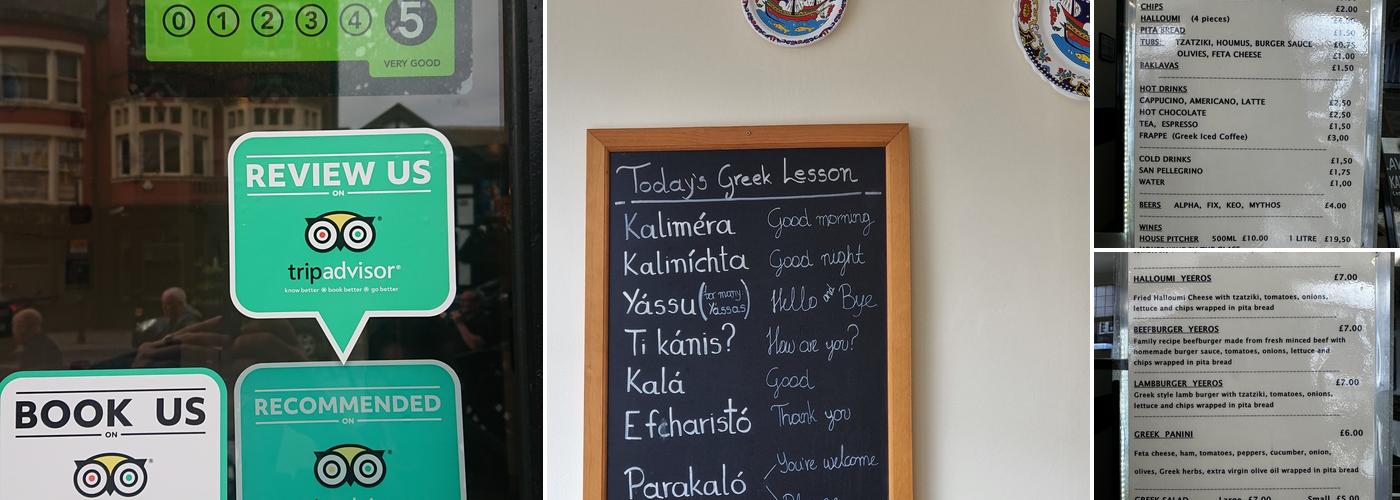 0 1 2 3 4 5
VERY GOOD
REVIEW US
ON
tripadvisor®
know better book better go better
BOOK US
ON
RECOMMENDED
ON
Today's Greek Lesson
Kaliméra Good morning
Kaliníchta Good night
Yássu (for many Yássas) Hello and Bye
Ti kánis? How are you?
Kalá Good
Efcharistó Thank you
Parakaló You're welcome
CHIPS £2.00
HALLOUMI (4 pieces)
PITA BREAD £1.50
TUBS: TZATZIKI, HOUMUS, BURGER SAUCE £0.75
OLIVIES, FETA CHEESE £1.00
BAKLAVAS £1.50
HOT DRINKS
CAPPUCINO, AMERICANO, LATTE £2,50
HOT CHOCOLATE £2,50
TEA, ESPRESSO £1,50
FRAPPE (Greek Iced Coffee) £3,00
COLD DRINKS £1,50
SAN PELLEGRINO £1,75
WATER £1,00
BEERS ALPHA, FIX, KEO, MYTHOS £4.00
WINES
HOUSE PITCHER 500ML £10.00 1 LITRE £19,50
HALLOUMI YEEROS £7.00
Fried Halloumi Cheese with tzatziki, tomatoes, onions,
lettuce and chips wrapped in pita bread
BEEFBURGER YEEROS £7.00
Family recipe beefburger made from fresh minced beef with
homemade burger sauce, tomatoes, onions, lettuce and
chips wrapped in pita bread
LAMBBURGER YEEROS £7.00
Greek style lamb burger with tzatziki, tomatoes, onions,
lettuce and chips wrapped in pita bread
GREEK PANINI £6.00
Feta cheese, ham, tomatoes, peppers, cucumber, onion,
olives, Greek herbs, extra virgin olive oil wrapped in pita bread
GREEK SALAD Large £7.00 Small £5.00